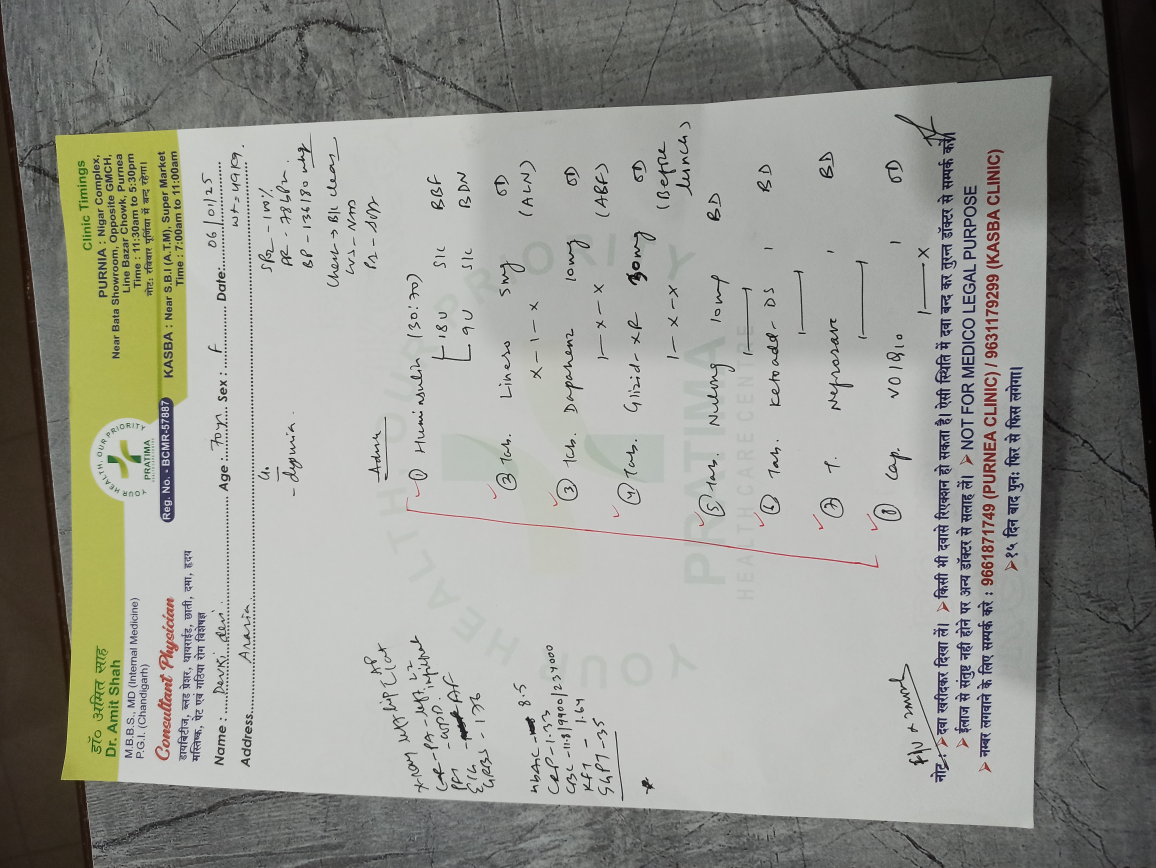 डॉ० अमित साह
Dr. Amit Shah
M.B.B.S., MD (Internal Medicine)
P.G.I. (Chandigarh)
Consultant Physician
डायबिटीज, ब्लड प्रेशर, थायराईड, छाती, दमा, हृदय
मस्तिष्क, पेट एवं गठिया रोग विशेषज्ञ
YOUR HEALTH, OUR PRIORITY
PRATIMA
Reg. No. - BCMR-57887
Clinic Timings
PURNIA : Nigar Complex,
Near Bata Showroom, Opposite GMCH,
Line Bazar Chowk, Purnea
Time : 11:30am to 5:30pm
नोट: रविवार पूर्णिया में बन्द रहेगा।
KASBA : Near S.B.I (A.T.M), Super Market
Time : 7:00am to 11:00am
Name : Devki devi Age 70yr Sex : F Date: 06/01/25
Address Araria wt = 49kg.
C/o
SPO2 - 100%
PR - 78bpm.
BP - 136/80 mmhg
Chest → B/L clear
CVS - NAD
P/A - Soft
Advice
① Huminsulin (30:70)
18U S/c BBF
9U S/c BDN
② Tab. Linares 5mg OD
x - 1 - x (ALN)
③ Tab. Dapahenz 10mg OD
1 - x - x (ABF)
④ Tab. Glizid-XR 30mg OD
1 - x - x (Before lunch)
⑤ Tab. Nulong 10mg BD
1 — 1
⑥ Tab. Ketoadd-DS 1 BD
1 — 1
⑦ T. Nefrosave 1 BD
1 — 1
⑧ Cap. 1 OD
1 — x
GRBS - 176
HbA1C - 8.5
CRP - 1.33
CBC - 11.8/9900/234000
KFT - 1.64
SGPT - 35
YOUR HEALTH OUR PRIORITY
PRATIMA
HEALTHCARE CENTRE
नोट: ➤दवा खरीदकर दिखा लें। ➤किसी भी दवासे रिएक्शन हो सकता है। ऐसी स्थिति में दवा बन्द कर तुरन्त डॉक्टर से सम्पर्क करें।
➤ईलाज से संतुष्ट नही होने पर अन्य डॉक्टर से सलाह लें। ➤ NOT FOR MEDICO LEGAL PURPOSE
➤ नम्बर लगवाने के लिए सम्पर्क करे : 9661871749 (PURNEA CLINIC) / 9631179299 (KASBA CLINIC)
➤१५ दिन बाद पुन: फिर से फिस लगेगा।